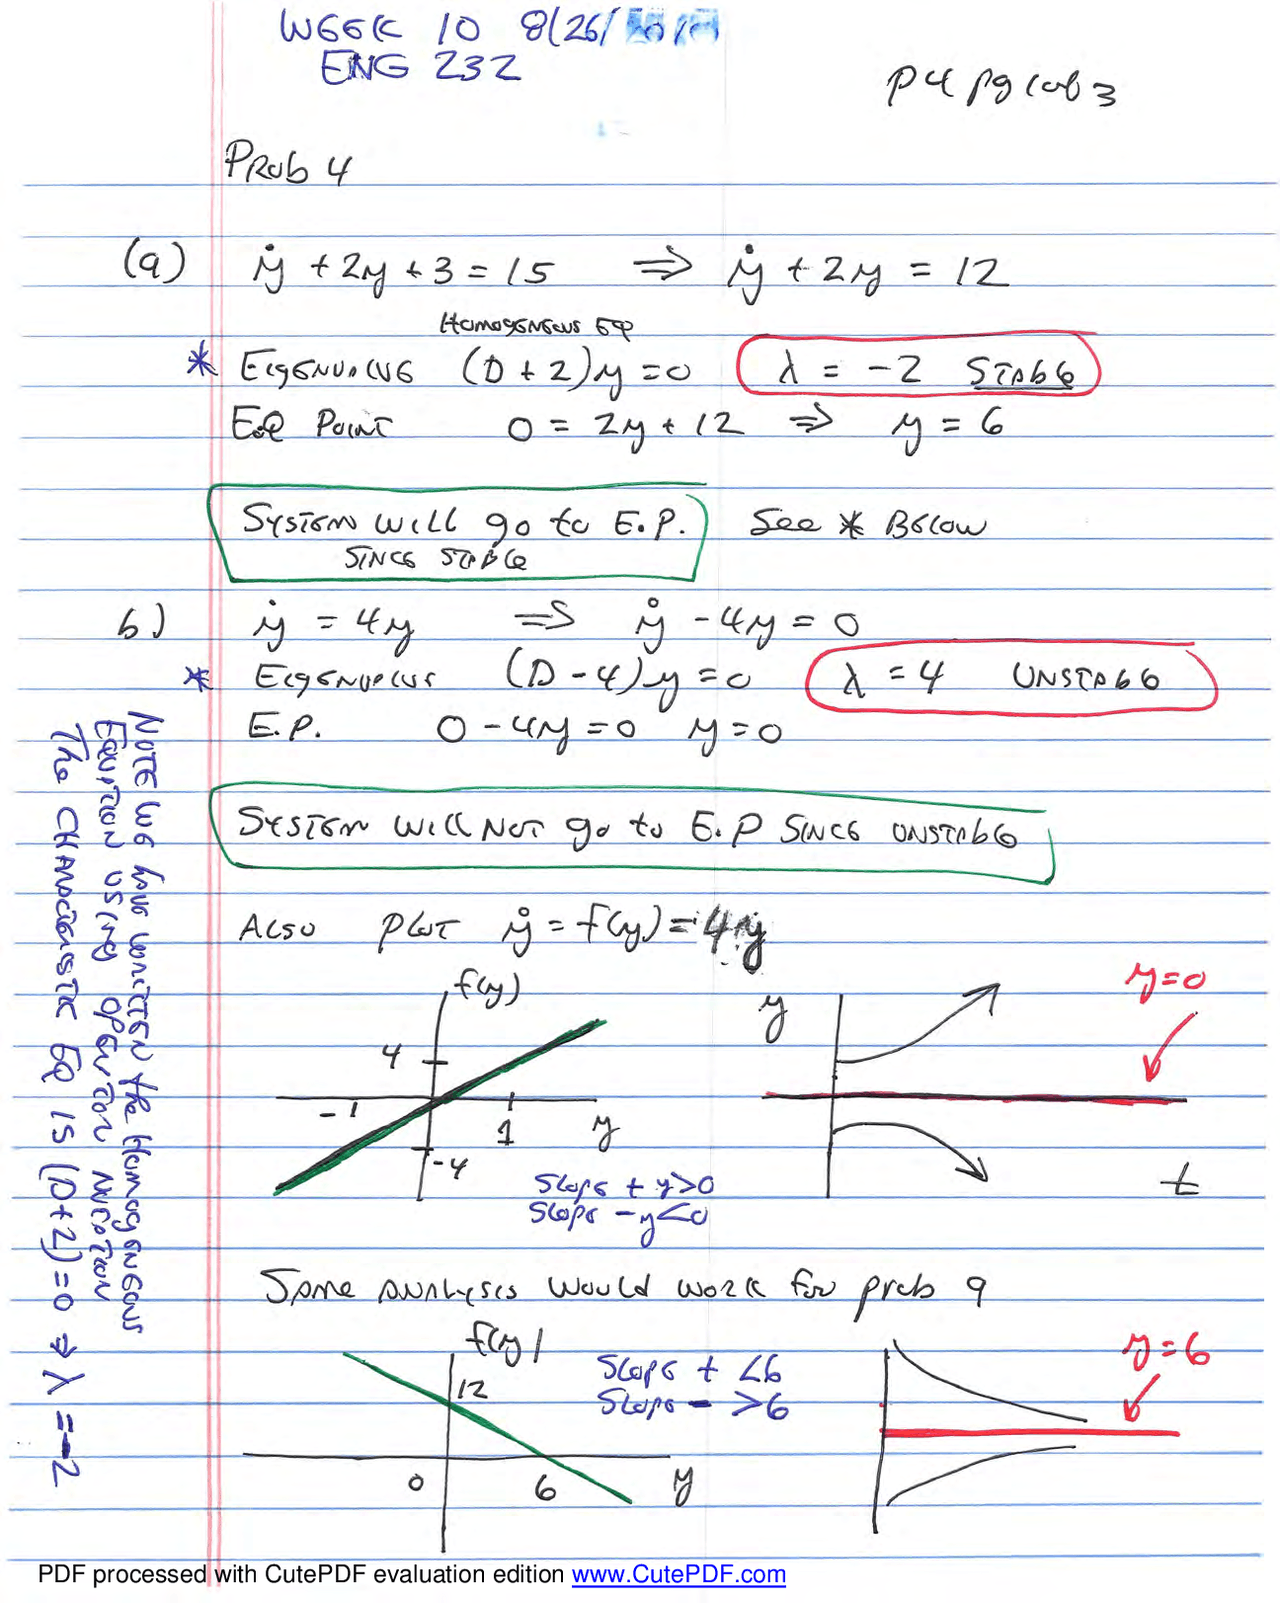 WEEK 10 8/26/
ENG 232
P4 pg 1 of 3
PROB 4
(a) ẏ + 2y + 3 = 15 ⇒ ẏ + 2y = 12
HOMOGENEOUS EQ
* EIGENVALUE (D + 2)y = 0 λ = -2 STABLE
E.Q POINT 0 = 2y + 12 ⇒ y = 6
SYSTEM WILL go to E.P. See * BELOW
SINCE STABLE
b) ẏ = 4y ⇒ ẏ - 4y = 0
* EIGENVALUE (D - 4)y = 0 λ = 4 UNSTABLE
E.P. 0 - 4y = 0 y = 0
SYSTEM WILL NOT go to E.P SINCE UNSTABLE
NOTE WE have WRITTEN the HOMOGENEOUS
EQUATION USING OPERATOR NOTATION
The CHARACTERISTIC EQ IS (D+2)=0 ⇒ λ = -2
ALSO PLOT ẏ = f(y) = 4y
f(y)
4
-1
1
y
-4
SLOPE + y>0
SLOPE - y<0
y
y=0
t
SAME ANALYSIS WOULD WORK for prob a
f(y)
12
0
6
y
SLOPE + <6
SLOPE - >6
y=6
PDF processed with CutePDF evaluation edition www.CutePDF.com